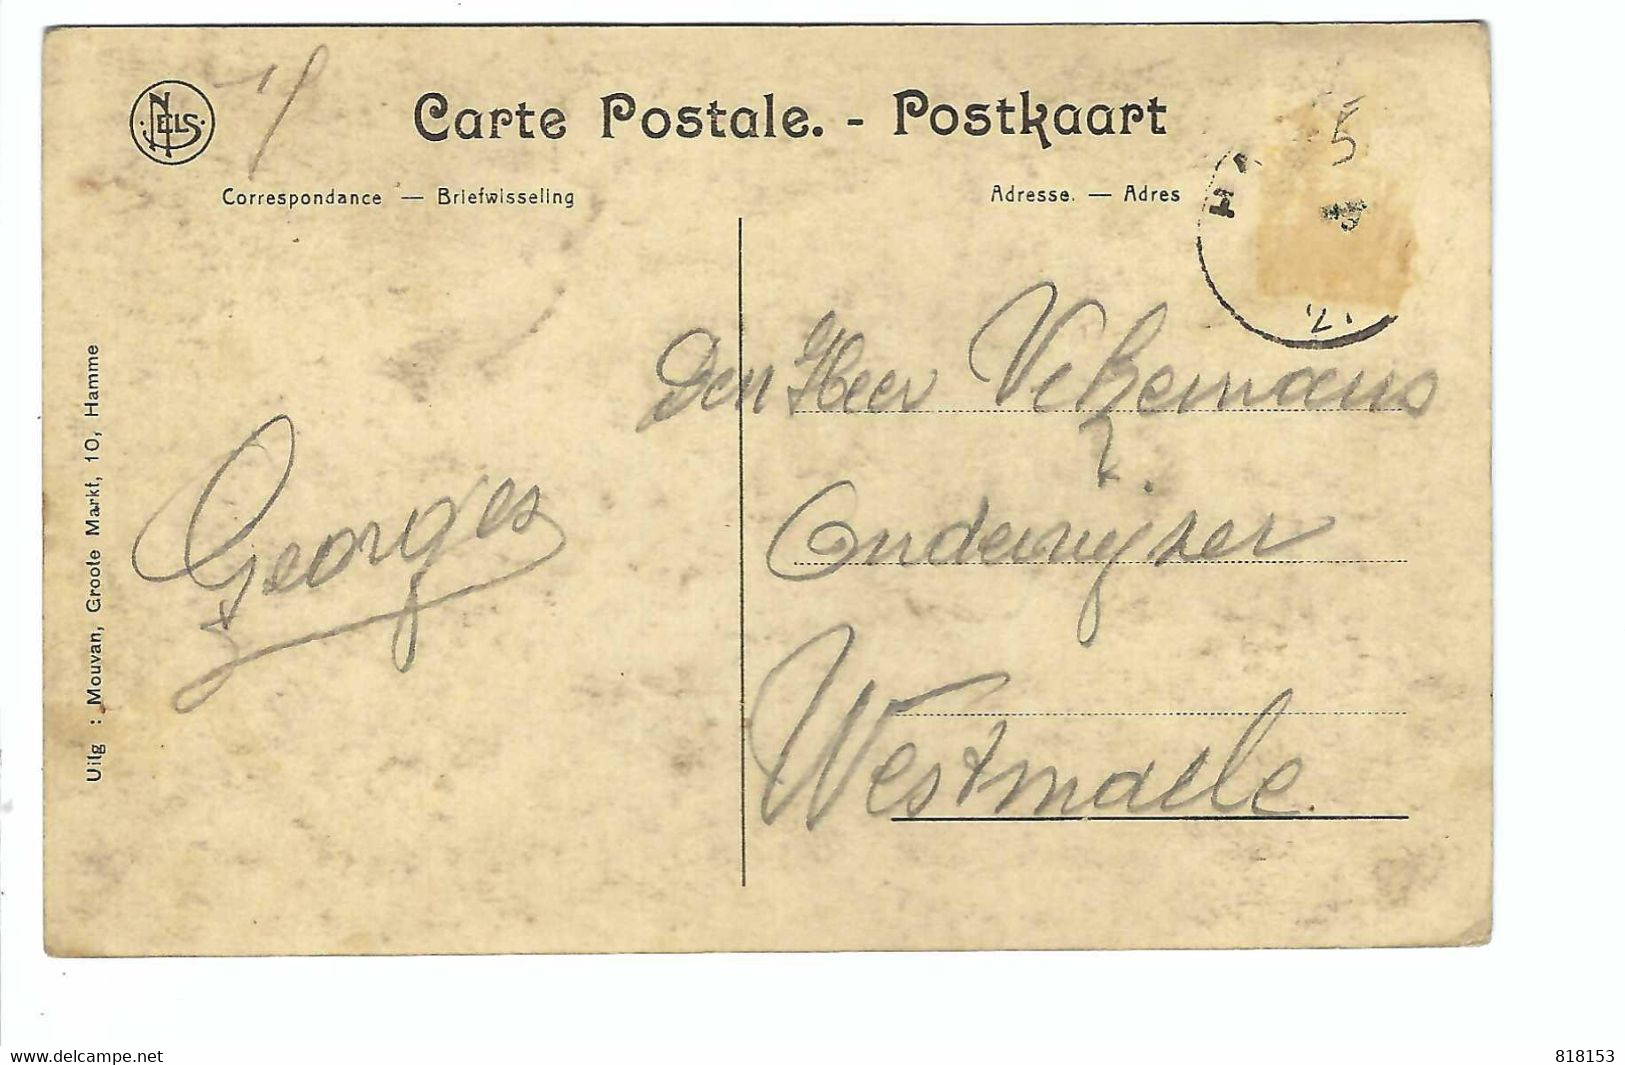 NELS
Carte Postale. - Postkaart
Correspondance — Briefwisseling
Adresse. — Adres
5
Den Heer Vekemans
Onderwijzer
Westmalle.
Georges
Uitg : Mouvan, Groote Markt, 10, Hamme
www.delcampe.net
818153